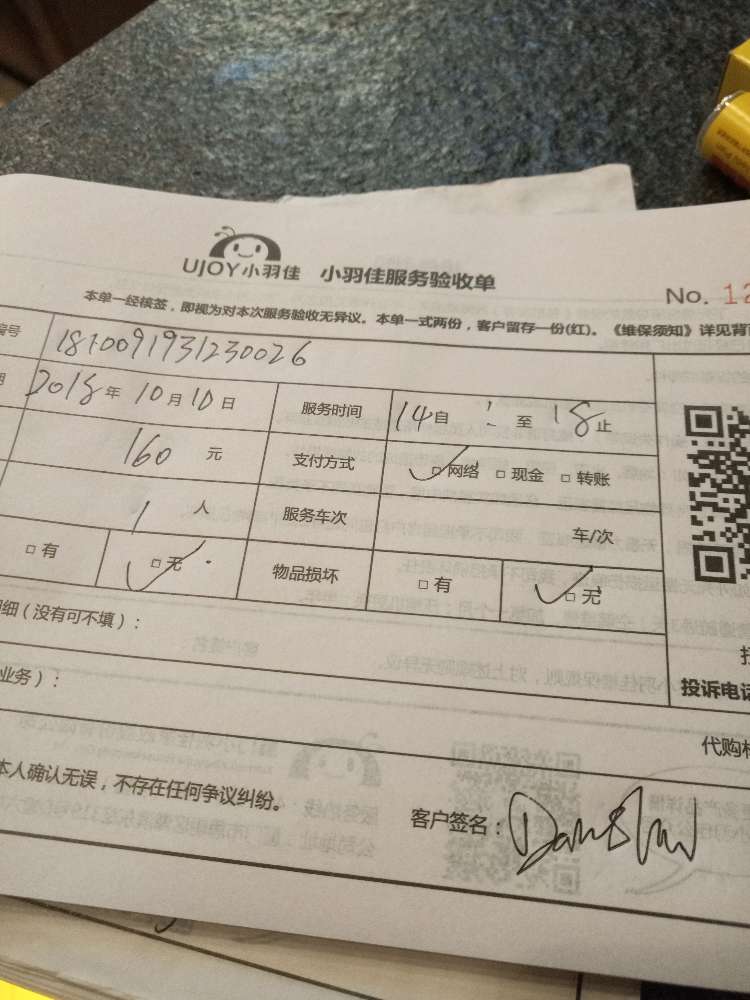 UJOY小羽佳 小羽佳服务验收单
No. 12
本单一经核签，即视为对本次服务验收无异议。本单一式两份，客户留存一份(红)。《维保须知》详见背面
编号 1810091931230026
期 2018年10月10日 服务时间 14自 : 至 18止
160 元 支付方式 □网络 □现金 □转账
1 人 服务车次 车/次
□有 □无 物品损坏 □有 □无
明细（没有可不填）：
业务）：
投诉电话
代购
本人确认无误，不存在任何争议纠纷。
客户签名：